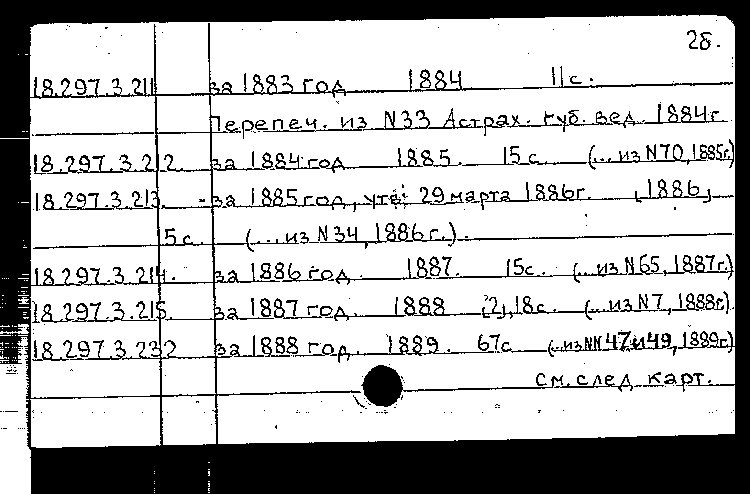 2б.
18.297.3.211 за 1883 год 1884 11с.
Перепеч. из N33 Астрах. губ. вед. 1884г
18.297.3.212. за 1884 год 1885. 15с (...из N70, 1885г.)
18.297.3.213. - за 1885 год, утв. 29 марта 1886г. [1886]
15с. (...из N34, 1886г.).
18.297.3.214. за 1886 год 1887. 15с. (...из N65, 1887г.)
18.297.3.215. за 1887 год. 1888 [2], 18с. (...из N7, 1888г.)
18.297.3.232 за 1888 год. 1889. 67с (...из NN 47и49, 1889г.)
См. след карт.